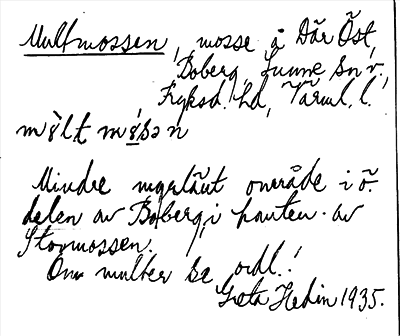 Multmossen, mosse å Där Öst,
Boberg, Sunne sn v.,
Fryksd. hd, Värml. l.
Mindre myrlänt område i ö.
delen av Boberg, i kanten av
Stormossen.
Om multer se ordl.!
Greta Hedin 1935.